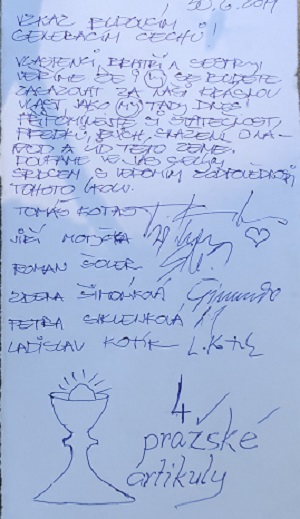 30.6.2011
VZKAZ BUDOUCÍM
GENERACÍM ČECHŮ!
VLASTENCI, BRATŘI A SESTRY!
VĚŘÍME, ŽE I VY SE BUDETE
ZASAZOVAT ZA NAŠI KRÁSNOU
VLAST, JAKO MY TADY DNES!
PŘIPOMÍNEJTE SI STATEČNOST
PŘEDKŮ, JEJICH SNAŽENÍ O NÁ-
ROD A LID TÉTO ZEMĚ.
DOUFÁME VE VÁS
SRDCEM S VĚDOMÍM ZODPOVĚDNOSTI
TOHOTO ÚKOLU.
TOMÁŠ KOTAS
JIŘÍ
ROMAN ŠOLER
ZDENA ŠIMŮNKOVÁ
PETRA SIKLENKOVÁ
LADISLAV KOTÍK L. Kotík
4
pražské
artikuly